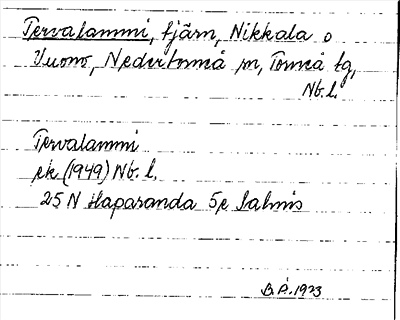 Tervalammi, tjärn, Nikkala o
Vuono, Nedertorneå sn, Torneå tg,
Nb. l.
Tervalammi
ek (1949) Nb. l.
25 N Haparanda 5e Salmis
B.Å. 1973